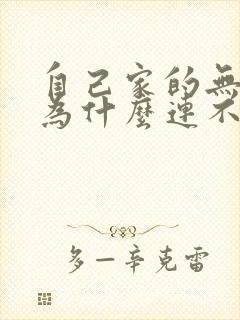 自己家的無
為什麼連不
多一辛克雷